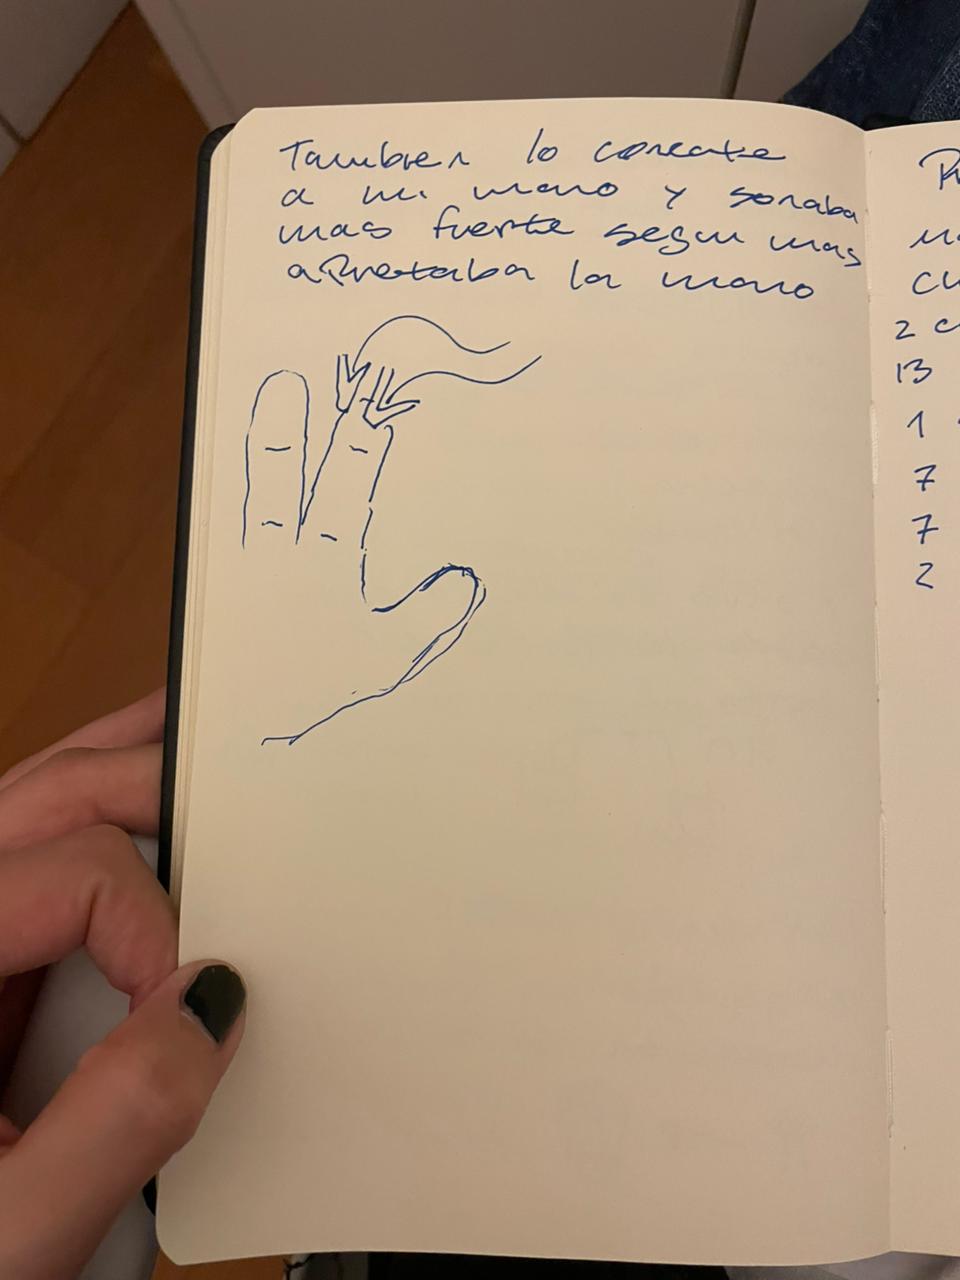 Tambien lo conecate
a mi mano y sonaba
mas fuerte segun mas
apretaba la mano
2 c
13
1
7
7
2